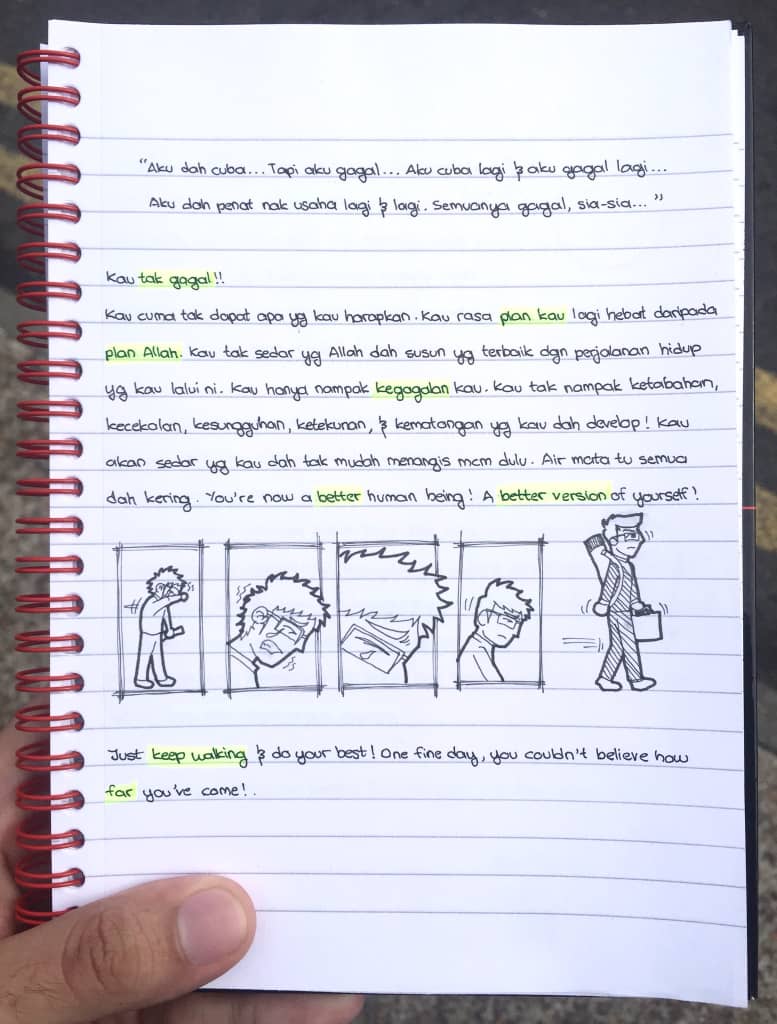 "Aku dah cuba... Tapi aku gagal... Aku cuba lagi & aku gagal lagi...
Aku dah penat nak usaha lagi & lagi. Semuanya gagal, sia-sia... "
Kau tak gagal!!
Kau cuma tak dapat apa yg kau harapkan. Kau rasa plan kau lagi hebat daripada
plan Allah. Kau tak sedar yg Allah dah susun yg terbaik dgn perjalanan hidup
yg kau lalui ni. Kau hanya nampak kegagalan kau. Kau tak nampak ketabahan,
kecekalan, kesungguhan, ketekunan, & kematangan yg kau dah develop! Kau
akan sedar yg kau dah tak mudah menangis mcm dulu. Air mata tu semua
dah kering. You're now a better human being! A better version of yourself!
Just keep walking & do your best! One fine day, you couldn't believe how
far you've come!.